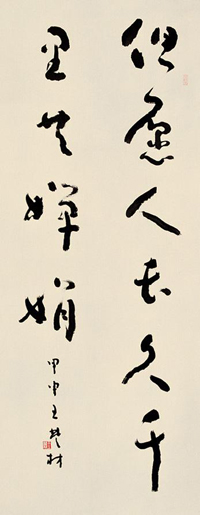 但愿人长久千
里共婵娟
甲申王楚材